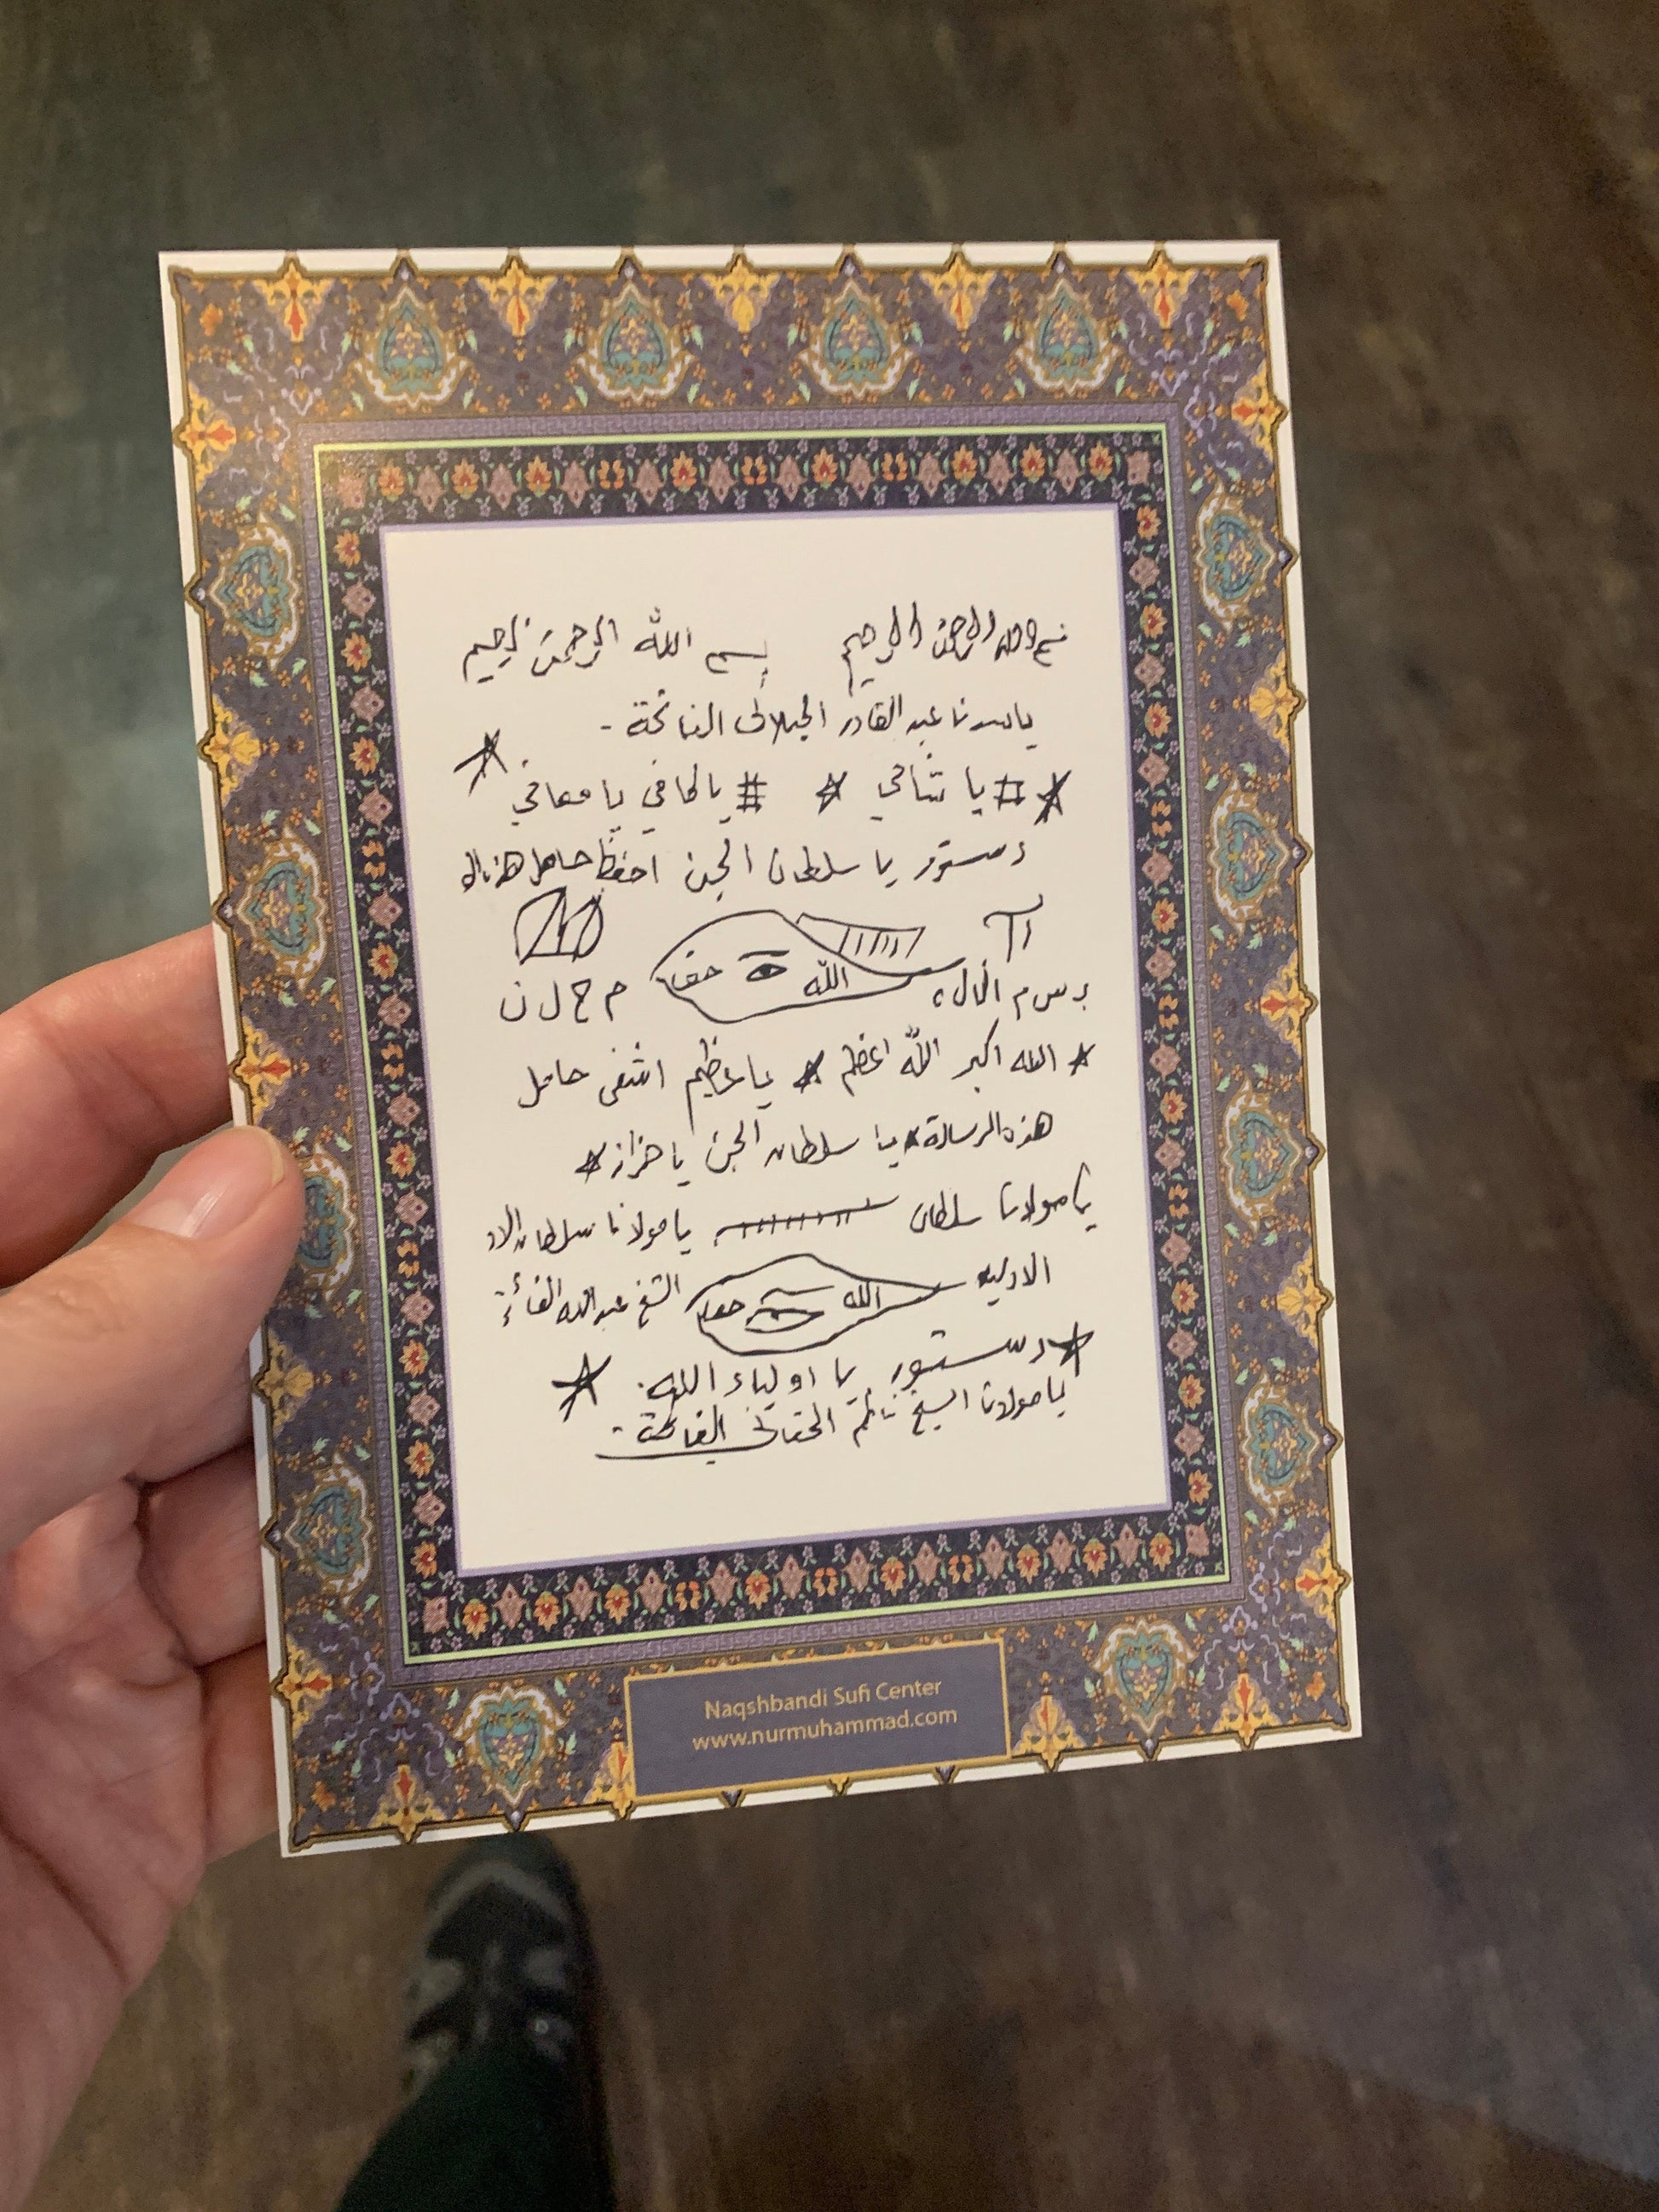 بسم الله الرحمن الرحيم بسم الله الرحمن الرحيم
يا سيدنا عبد القادر الجيلاني الفاتحة -
# يا شافي # يا كافي يا معافي
دستور يا سلطان الجن احفظ حامل هذه
الله حق
ب س م ا ل ل ه م ح ل ن
الله اكبر الله اعظم يا عظيم اشفى حامل
هذه الرسالة يا سلطان الجن يا
يا مولانا سلطان يا مولانا سلطان
الله الشيخ عبد الله الفائز
دستور يا اولياء الله
يا مولانا الشيخ ناظم الحقاني الفاتحة
Naqshbandi Sufi Center
www.nurmuhammad.com